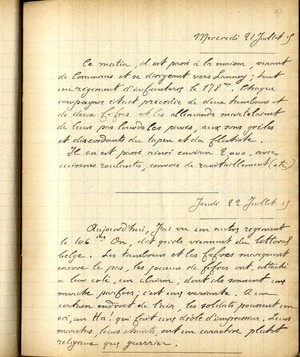 Mercredi 21 Juillet 15
Ce matin, il est passé à la maison, venant
de Commines et se dirigeant vers Lannoy, tout
un régiment d'infanterie le 178me. Chaque
compagnie était précédée de deux tambours et
de deux fifres et les allemands martelaient
de leurs pas lourds les pavés, aux sons grêles
et discordants du tapen et du flûtiste.
Il en est passé ainsi environ 2000, avec
cuisines roulantes, convois de ravitaillement (etc)
Jeudi 22 Juillet 15
Aujourd'hui, J'ai vu un autre régiment
le 106me. On dit qu'ils viennent du littoral
belge. Les tambours et les fifres marquent
encore le pas, les joueurs de fifres ont, attaché
à leur côté, un clairon, dont ils sonnent une
marche parfois; c'est une variante. A un
certain endroit de l'air, les soldats poussent un
cri, un Ha! qui fait une drôle d'impression. Leurs
marches, leurs chants, ont un caractère plutôt
religieux que guerrier.